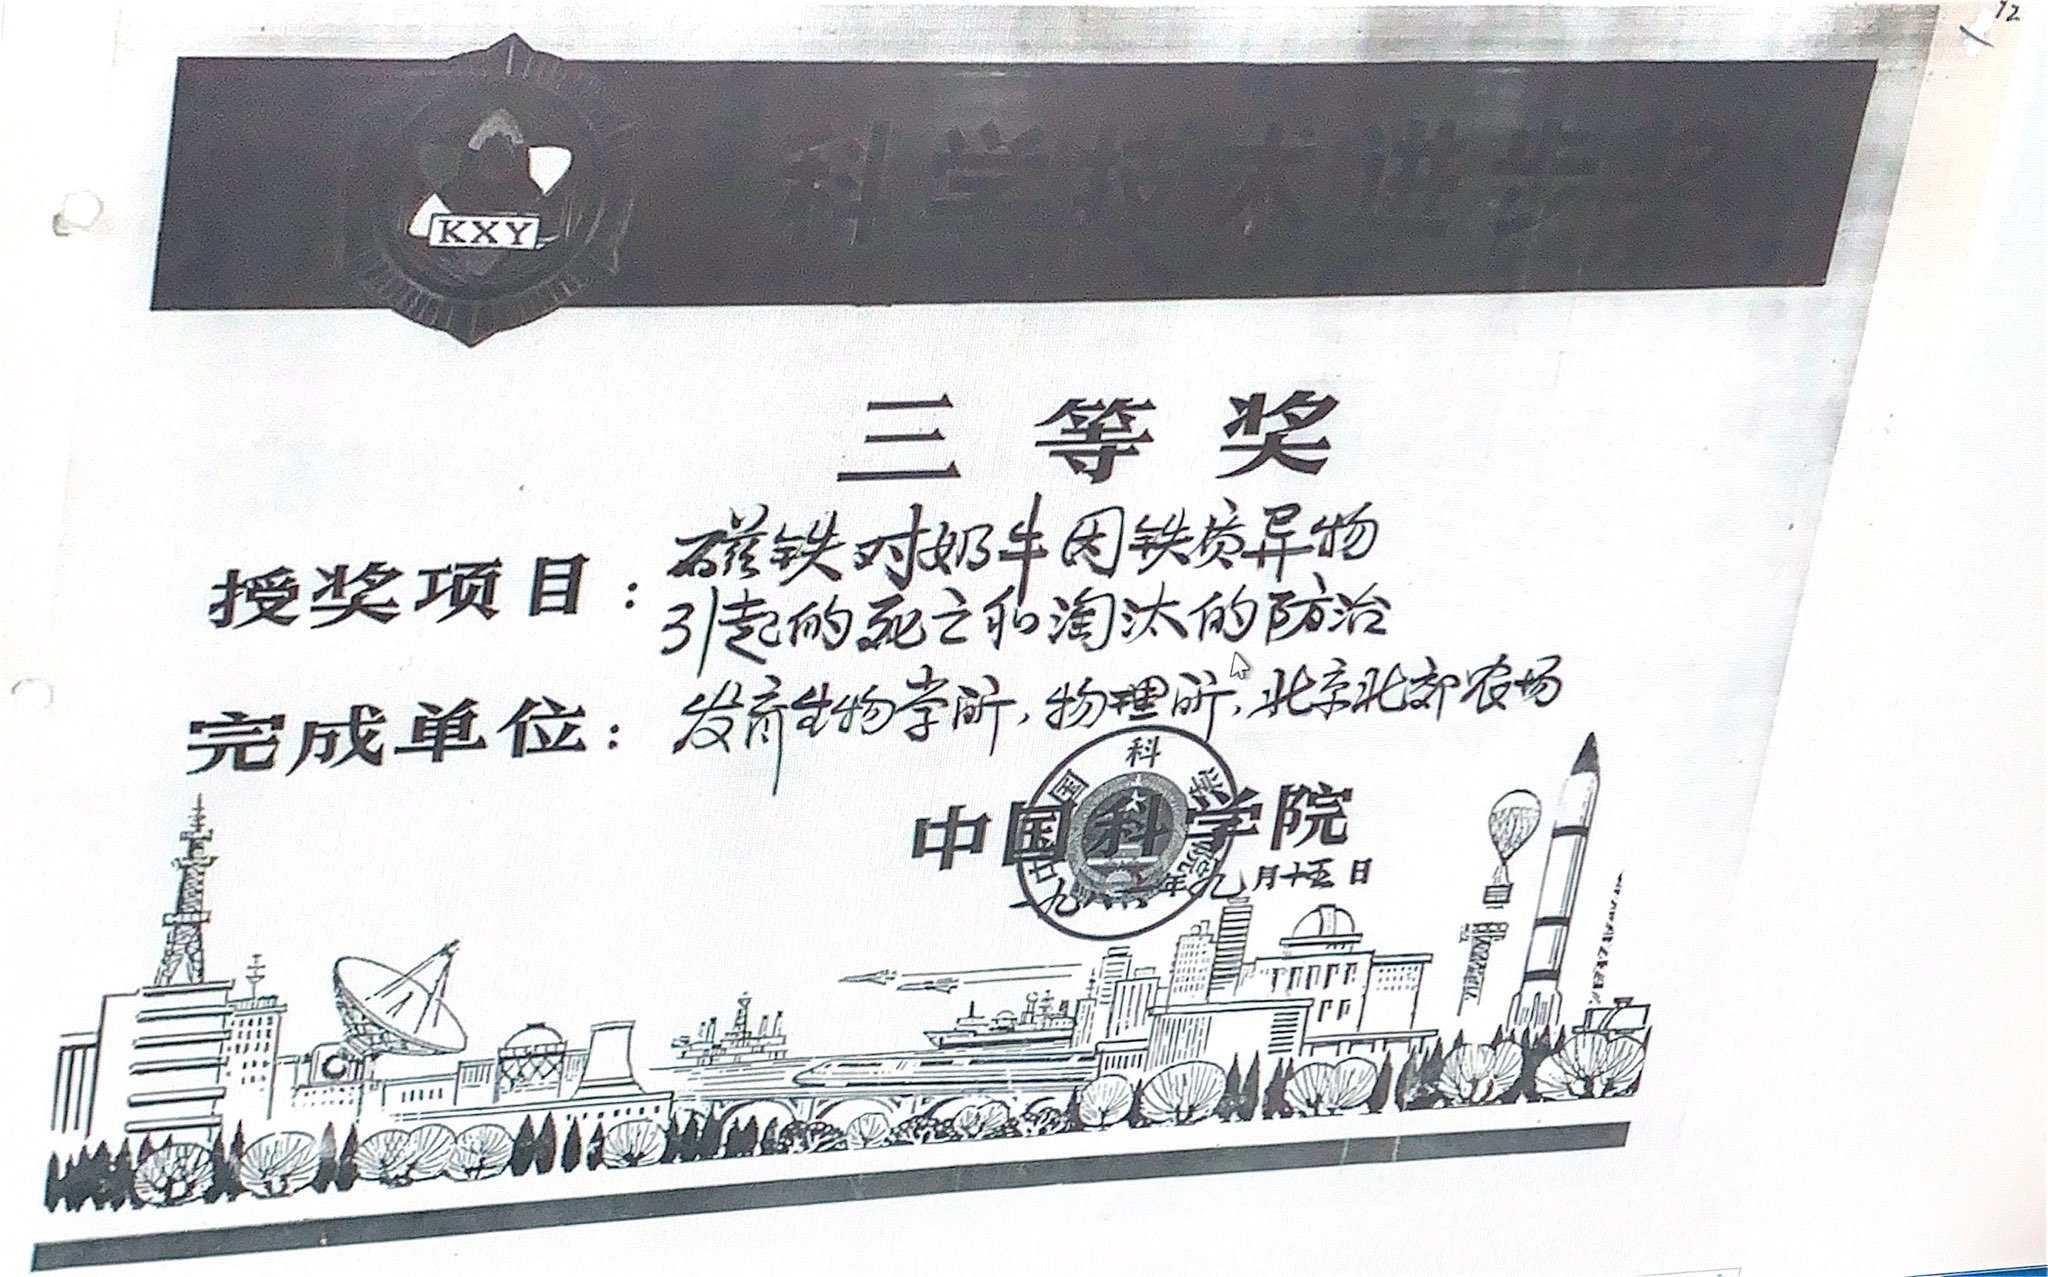 科学技术进步奖
KXY
三等奖
授奖项目：磁铁对奶牛因铁质异物
引起的死亡和淘汰的防治
完成单位：发育生物学所，物理所，北京北郊农场
中国科学院
年九月十五日
12